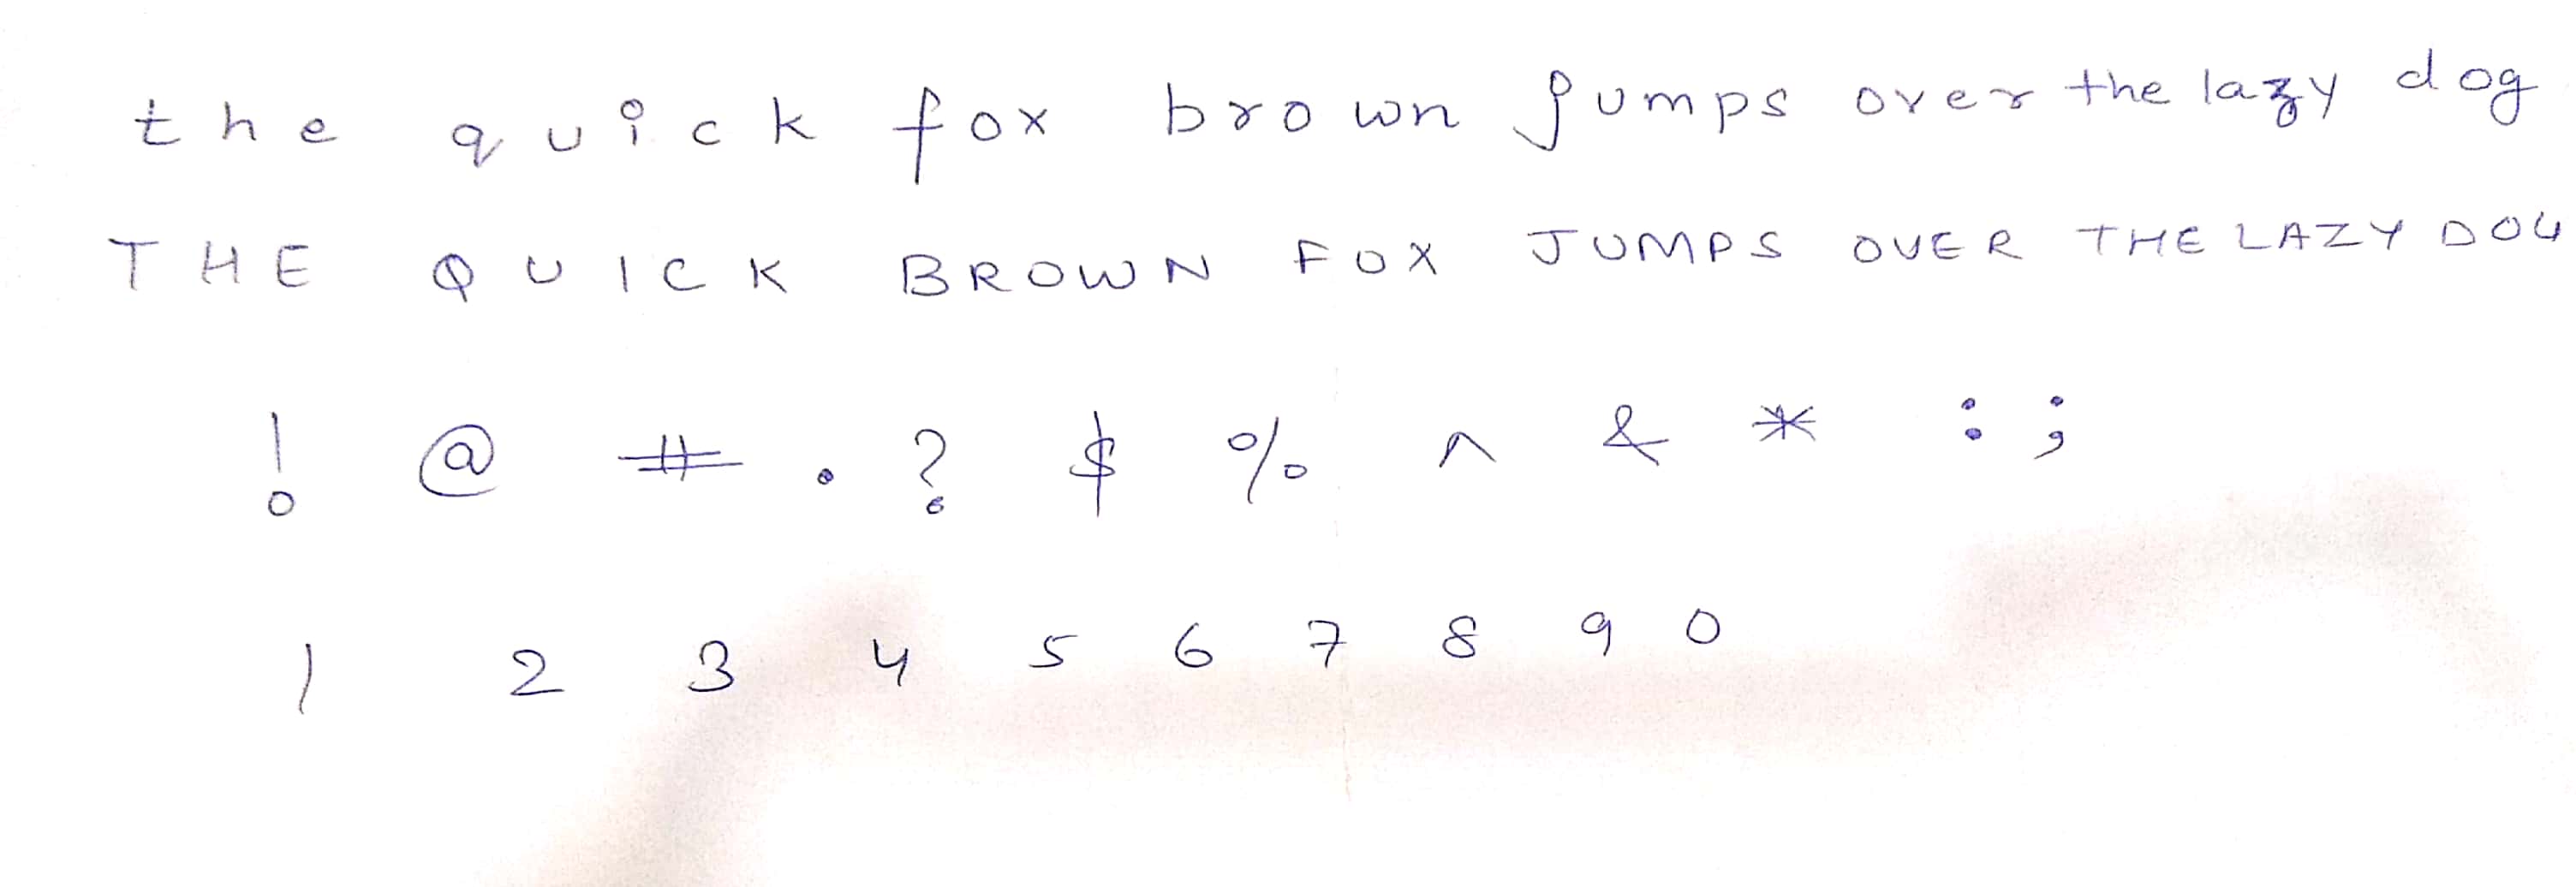 the quick fox brown jumps over the lazy dog
THE QUICK BROWN FOX JUMPS OVER THE LAZY DOG
! @ # . ? $ % ^ & * : ;
1 2 3 4 5 6 7 8 9 0